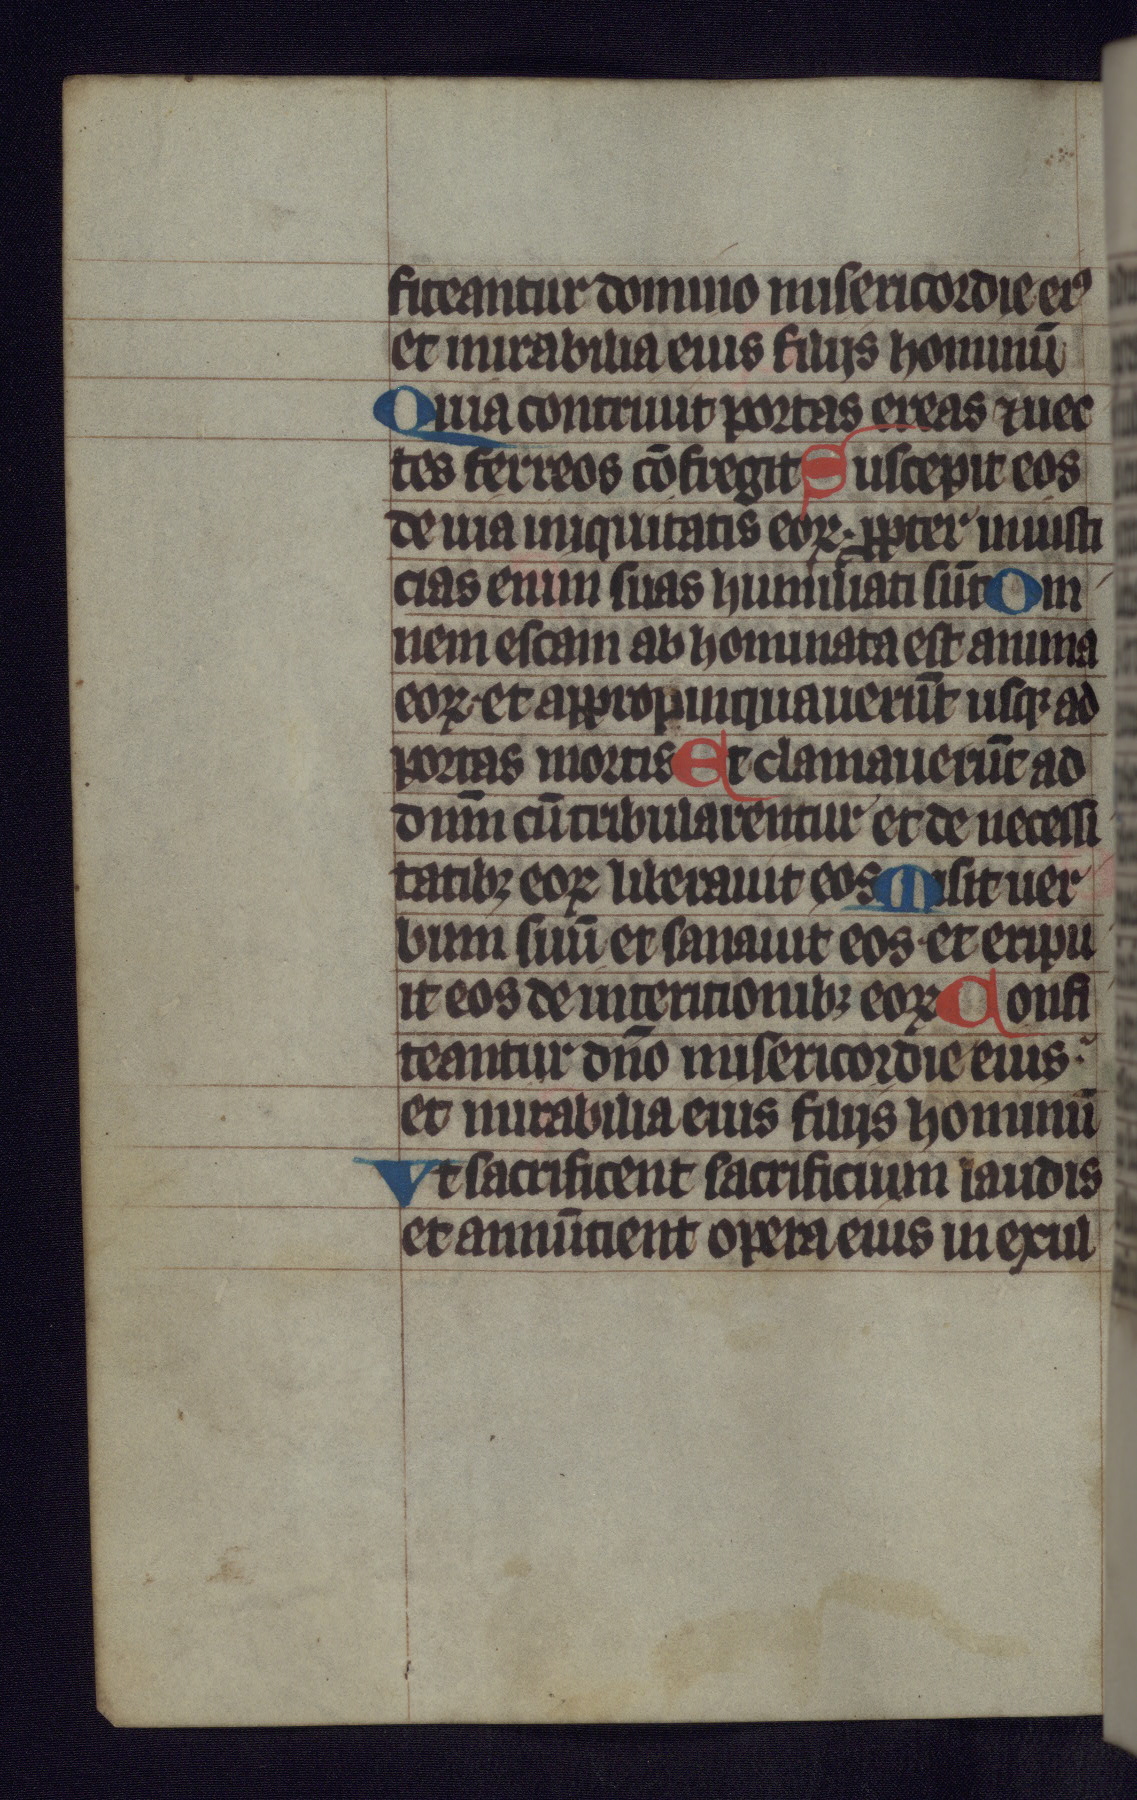 fiteantur domino misericordie eiꝰ
et mirabilia eius filijs hominū
Quia contriuit portas ereas ⁊ uec
tes ferreos cōfregit Suscepit eos
de uia iniquitatis eoꝝ· ꝓpter iniusti
cias enim suas humiliati sūt Om
nem escam abhominata est anima
eoꝝ· et appropinquauerūt usqꝫ ad
portas mortis Et clamauerūt ad
dnm̄ cū tribularentur et de necessi
tatibꝫ eoꝝ liberauit eos Misit uer
bum suū et sanauit eos· et eripu
it eos de interitionibꝫ eoꝝ Confi
teantur dn̄o misericordie eius:
et mirabilia eius filijs hominū
Vt sacrificent sacrificium laudis
et annūtient opera eius in exul